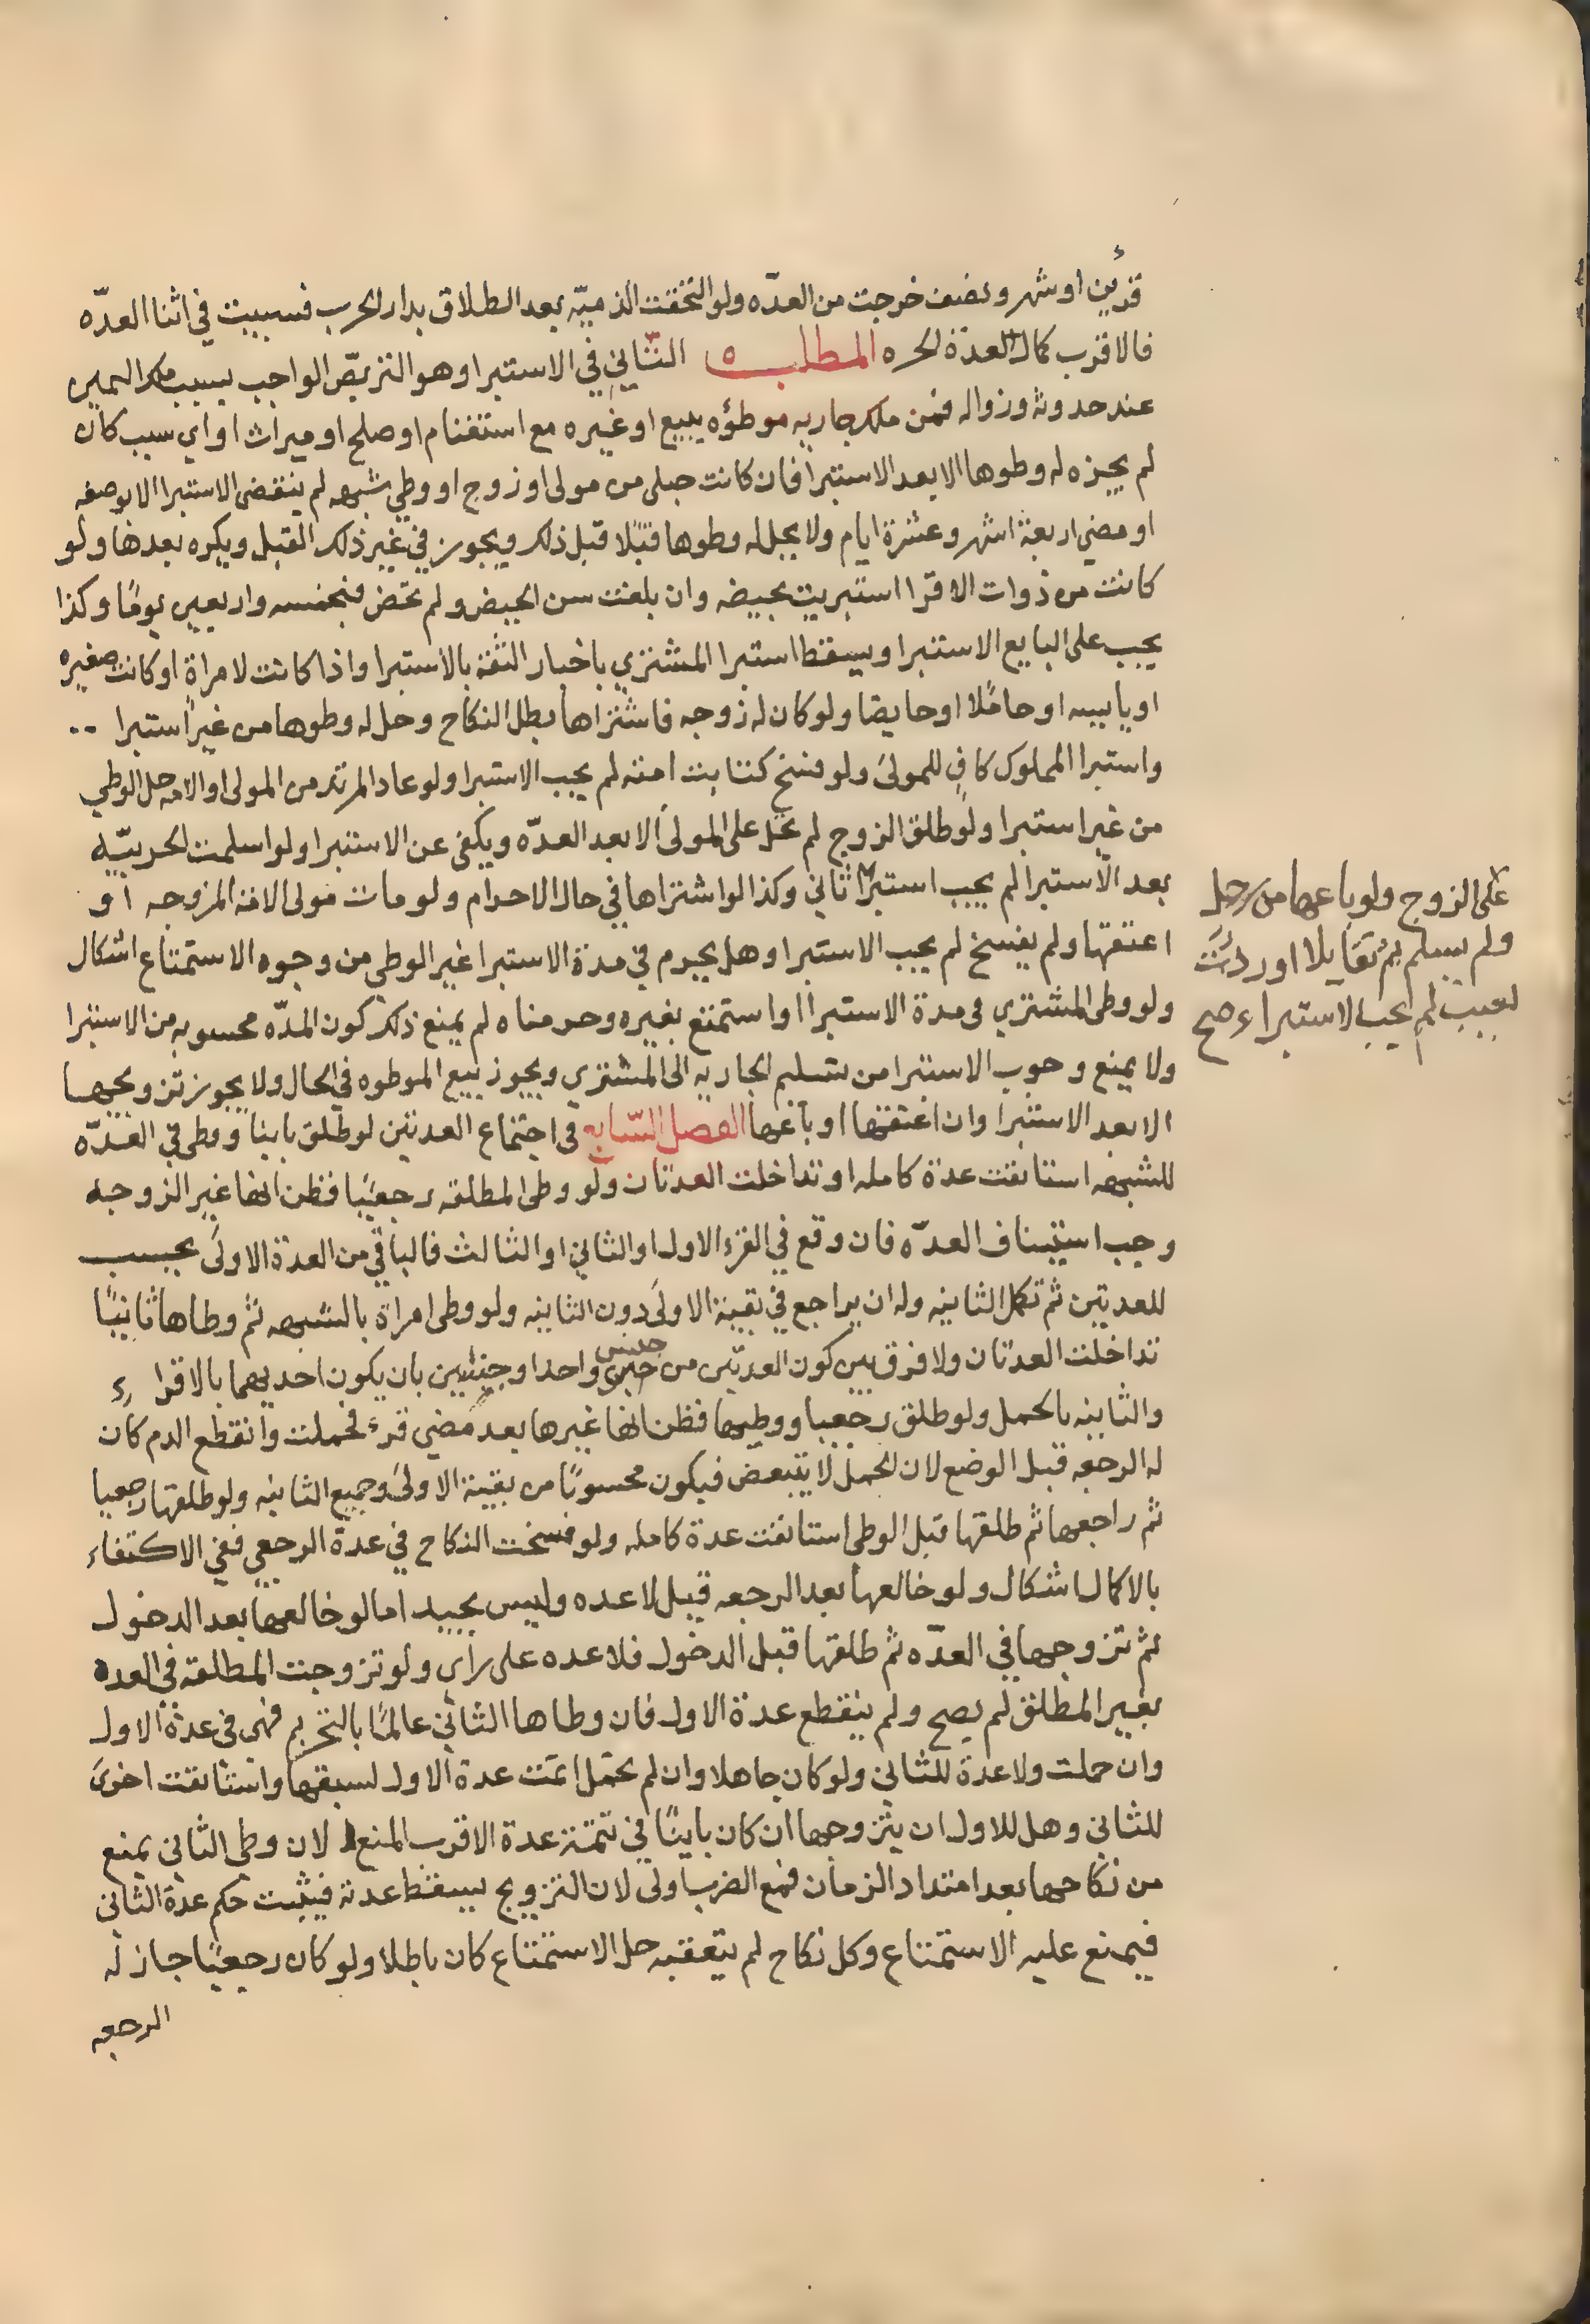 قرئين او شهر ونصف خرجت من العدّه ولو التحقت الذميّه بعد الطلاق بدار الحرب فسبيت في اثنا العدّه
فالاقرب كمال العدة الحره المطلب الثاني في الاستبرا وهو التربّص الواجب بسبب ملك اليمين
عند حدوثه وزواله فمن ملك جاريه موطؤه ببيع او غيره مع استغنام او صلح او ميراث او اي سبب كان
لم يجزه له وطوها الا بعد الاستبرا فان كانت حبلى من مولى او زوج او وطي شبهه لم ينقضى الاستبرا الا بوضعه
او مضي اربعة اشهر وعشرة ايام ولا يحل له وطوها قبلا قبل ذلك ويجوز في غير ذلك القبل ويكره بعدها ولو
كانت من ذوات الاقرا استبريت بحيضه وان بلغت سن الحيض ولم تحض فبخمسه واربعين يومًا وكذا
يجب على البايع الاستبرا ويسقط استبرا المشتري باخبار الثقة بالاستبرا واذا كانت لامراة او كانت صغيره
او يايسه او حاملًا او حايضا ولو كان له زوجه فاشتراها بطل النكاح وحل له وطوها من غير استبرا
واستبرا المملوك كافٍ للمولى ولو فسخ كتابت امته لم يجب الاستبرا ولو عاد المرتد من المولى او الامه حل الوطي
من غير استبرا ولو طلق الزوج لم تحل على المولى الا بعد العدّه ويكفى عن الاستبرا ولو اسلمت الحربيّه
بعد الاستبرا لم يجب استبرا ثاني وكذا لو اشتراها في حال الاحرام ولو مات مولى الامة المزوجه او
اعتقها ولم يفسخ لم يجب الاستبرا وهل يحرم في مدة الاستبرا غير الوطى من وجوه الاستمتاع اشكال
ولو وطى المشتري في مدة الاستبرا او استمتع بغيره وحرمناه لم يمنع ذلك كون المدّه محسوبه من الاستبرا
ولا يمنع وجوب الاستبرا من تسليم الجاريه الى المشتري ويجوز بيع الموطوه في الحال ولا يجوز تزويجها
الا بعد الاستبرا وان اعتقها او باعها الفصل السّابع في اجتماع العدتين لو طلق باينا ووطى في العدّه
للشبهه استانفت عدة كامله او تداخلت العدتان ولو وطى المطلقه رجعيًا فظن انها غير الزوجه
وجب استيناف العدّه فان وقع في القرء الاول او الثاني او الثالث فالباقي من العدة الاولى يحسب
للعدتين ثم تكمل الثانيه وله ان يراجع في بقية الاولى دون الثانيه ولو وطى امراة بالشبهه ثم وطاها ثانيًا
تداخلت العدتان ولا فرق بين كون العدتين من جنس واحد او جنسين بان يكون احديهما بالاقراء
والثانيه بالحمل ولو طلق رجعيا ووطيها فظن انها غيرها بعد مضي قرء فحملت وانقطع الدم كان
له الرجعه قبل الوضع لان الحمل لا يتبعض فيكون محسوبًا من بقية الاولى وجميع الثانيه ولو طلقها رجعيا
ثم راجعها ثم طلقها قبل الوطى استانفت عدة كامله ولو فسخت النكاح في عدة الرجعي ففي الاكتفاء
بالاكمال اشكال ولو خالعها بعد الرجعه قيل لا عده وليس بجيد اما لو خالعها بعد الدخول
ثم تزوجها في العدّه ثم طلقها قبل الدخول فلا عده على راى ولو تزوجت المطلقه في العده
بغير المطلق لم يصح ولم ينقطع عدة الاول فان وطاها الثاني عالمًا بالتحريم فهى في عدة الاول
وان حملت ولا عدة للثاني ولو كان جاهلا وان لم تحمل اتمت عدة الاول لسبقها واستانفت اخرى
للثاني وهل للاول ان يتزوجها ان كان باينًا في تتمة عدة الاقرب المنع لان وطى الثاني يمنع
من نكاحها بعد امتداد الزمان فمنع الضرب اولى لان التزويج يسقط عدته فيثبت حكم عدة الثاني
فيمنع عليه الاستمتاع وكل نكاح لم يتعقبه حل الاستمتاع كان باطلا ولو كان رجعيًا جاز له
الرجعه
على الزوج ولو باعها من رجل
ولم يسلم ثم تقايلا او ردت
لعيب لم يجب الاستبراء صح